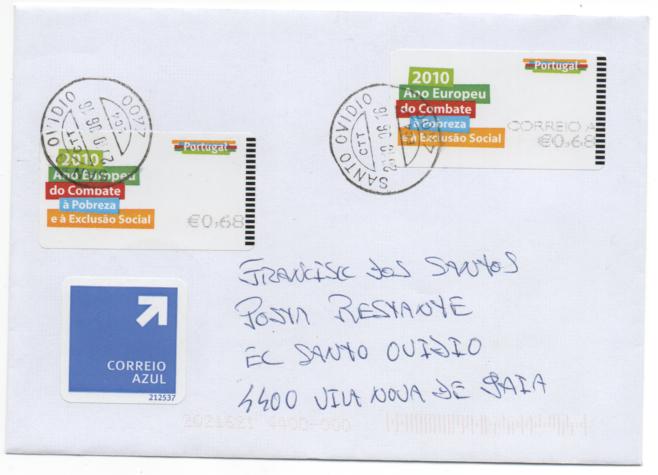 Portugal
2010
Ano Europeu
do Combate
à Pobreza
e à Exclusão Social
CORREIO A
€0,68
SANTO OVIDIO
CTT
4400
Portugal
2010
Ano Europeu
do Combate
à Pobreza
e à Exclusão Social
€0,68
CORREIO
AZUL
212537
FRANCISC DOS SANTOS
POSTA RESTANTE
EC SANTO OVIDIO
4400 VILA NOVA DE GAIA
4400-000